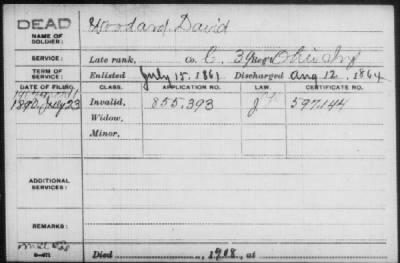 DEAD
Woodard David
NAME OF SOLDIER:
SERVICE: Late rank, Co. C. 39 Reg't Ohio Inf
TERM OF SERVICE: Enlisted July 15, 1861 Discharged Aug 12, 1864
DATE OF FILING. CLASS. APPLICATION NO. LAW. CERTIFICATE NO.
1890, July 23 Invalid, 855,393 597,144
Widow,
Minor,
ADDITIONAL SERVICES:
REMARKS:
Died 1908, at